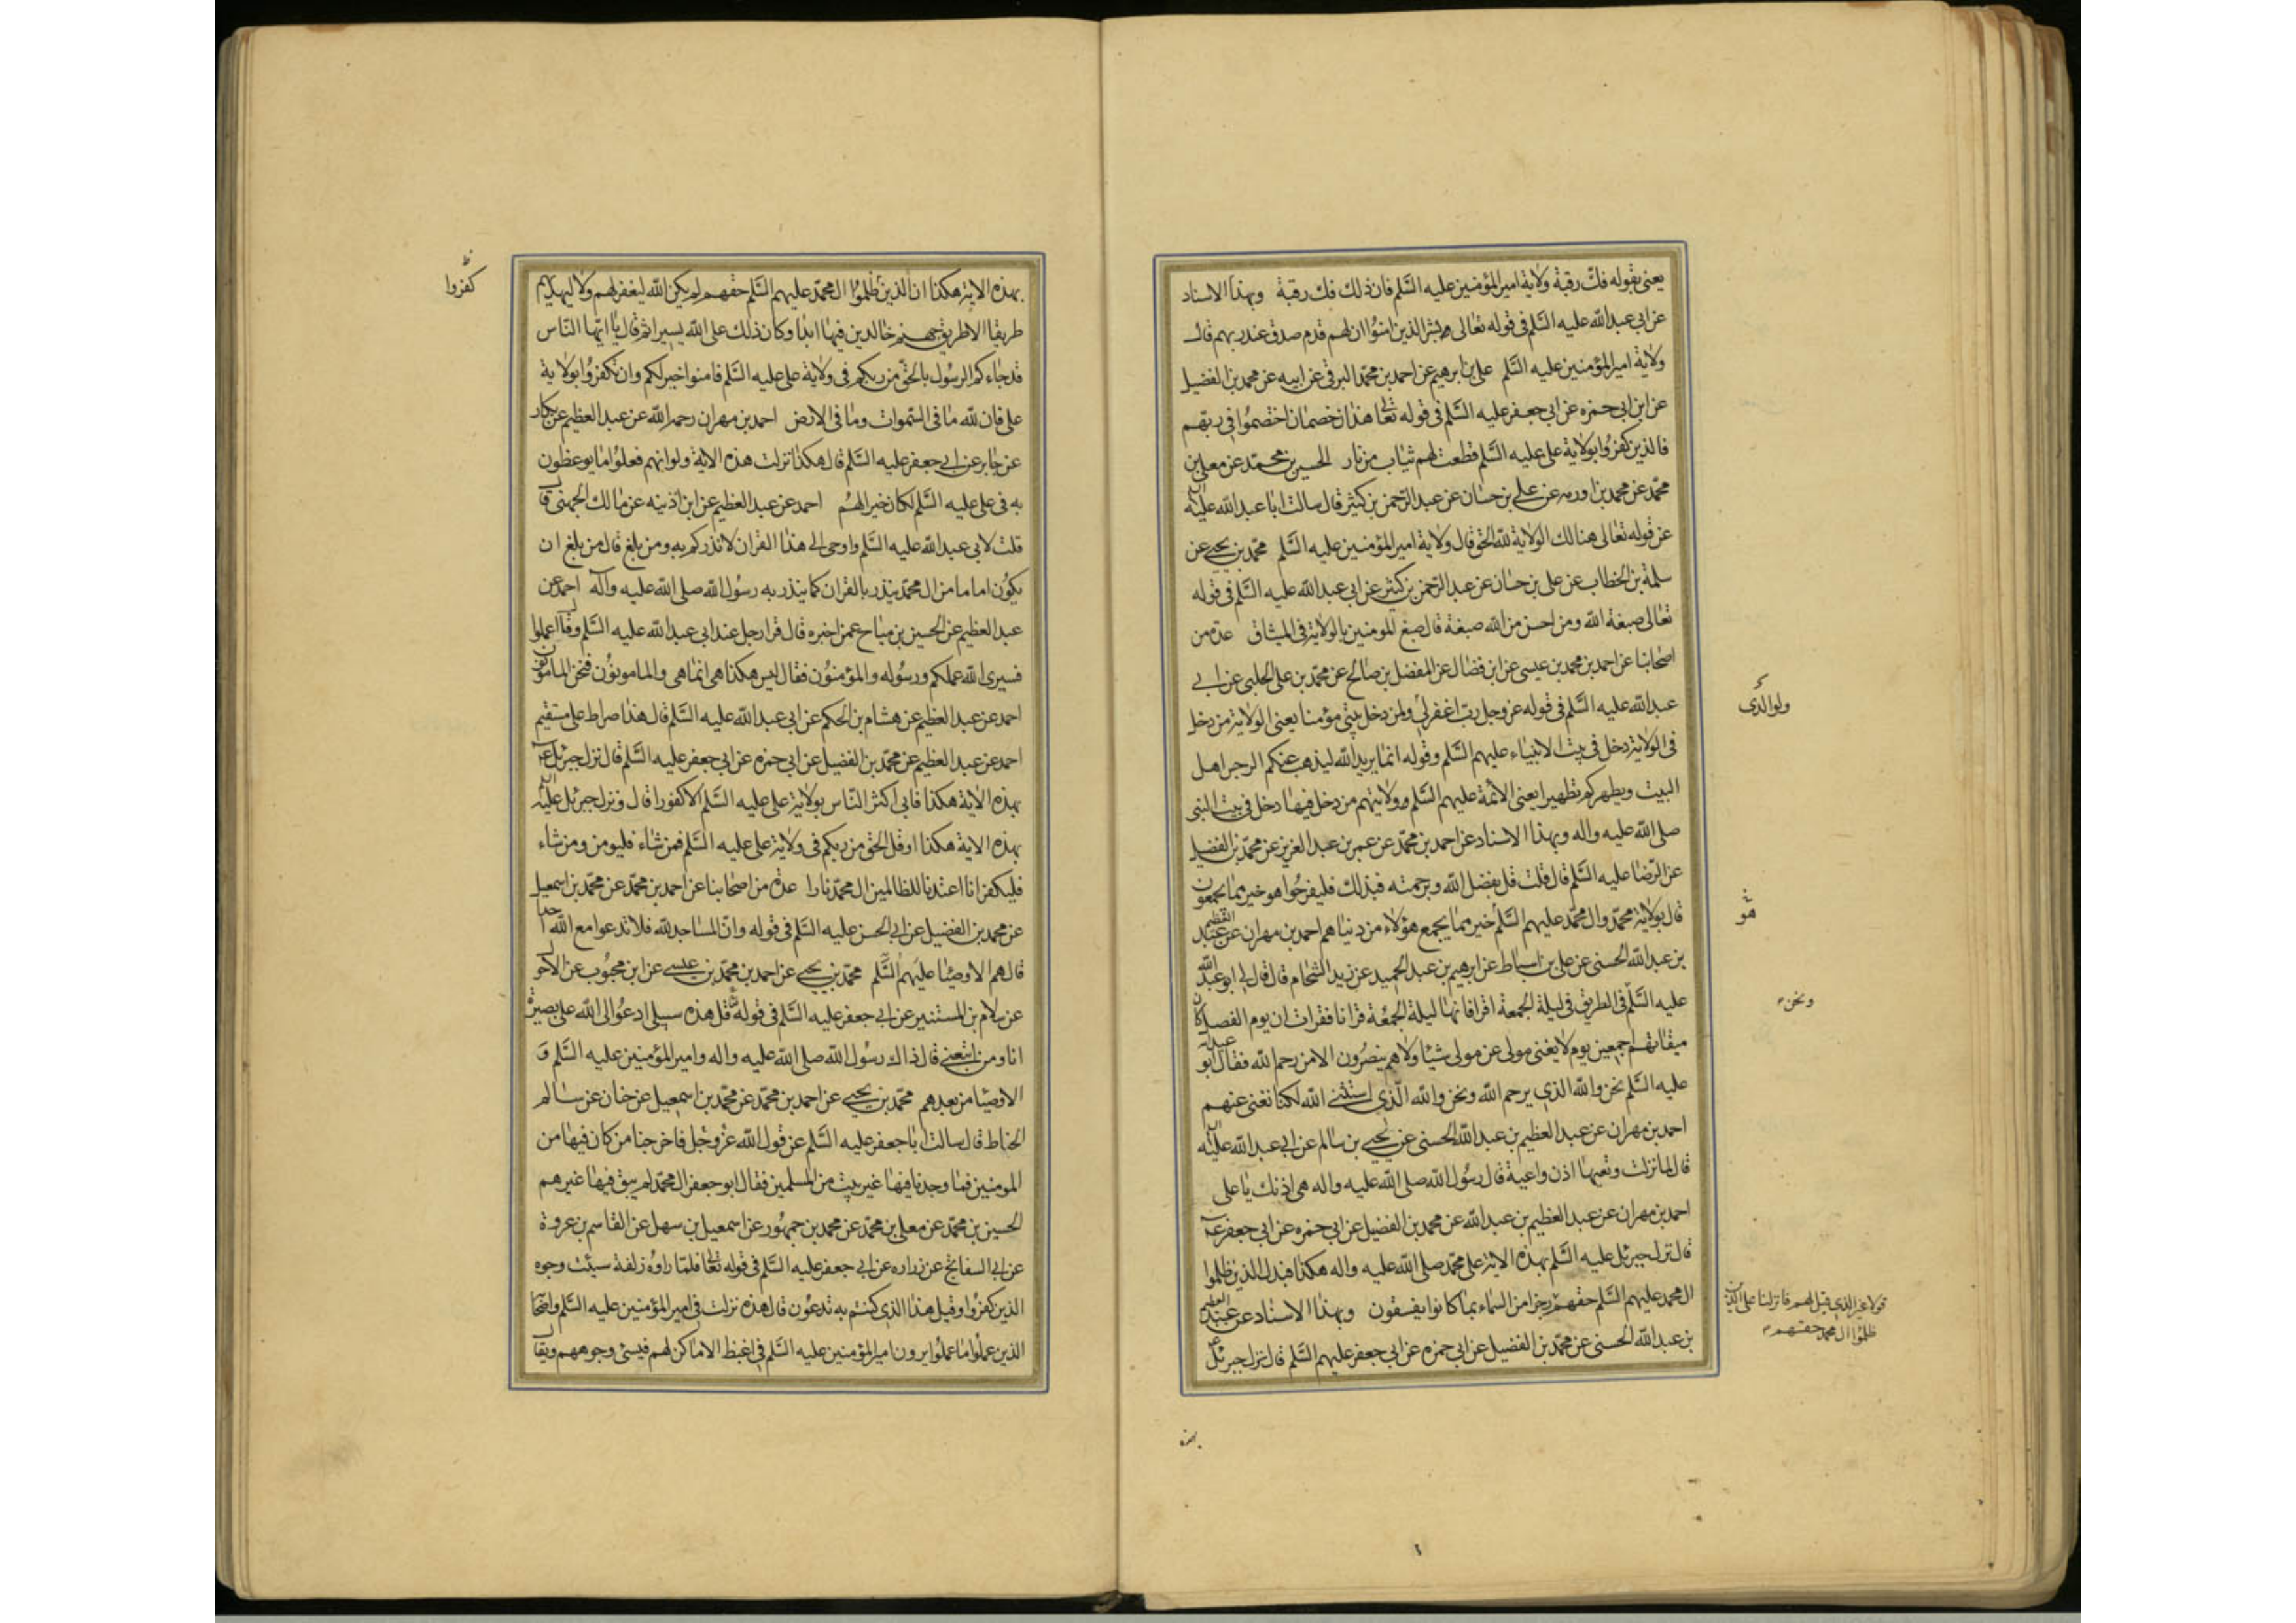 يعنى بقوله فك رقبة ولاية امير المؤمنين عليه السلم فان ذلك فك رقبة وبهذا الاسناد
عن ابى عبد الله عليه السلم فى قوله تعالى وبشر الذين امنوا ان لهم قدم صدق عند ربهم قال
ولاية امير المؤمنين عليه السلم على بن ابرهيم عن احمد بن محمد البرقى عن ابيه عن محمد بن الفضيل
عن ابن ابى حمزه عن ابى جعفر عليه السلم فى قوله تعالى هذان خصمان اختصموا فى ربهم
فالذين كفروا بولاية على عليه السلم قطعت لهم ثياب من نار الحسين بن محمد عن معلى بن
محمد عن محمد بن اورمه عن على بن حسان عن عبد الرحمن بن كثير قال سالت ابا عبد الله عليه السلم
عن قوله تعالى هنالك الولاية لله الحق قال ولاية امير المؤمنين عليه السلم محمد بن يحيى عن
سلمة بن الخطاب عن على بن حسان عن عبد الرحمن بن كثير عن ابى عبد الله عليه السلم فى قوله
تعالى صبغة الله ومن احسن من الله صبغة قال صبغ المومنين بالولاية فى الميثاق عدة من
اصحابنا عن احمد بن محمد بن عيسى عن ابن فضال عن المفضل بن صالح عن محمد بن على الحلبى عن ابى
عبد الله عليه السلم فى قوله عز وجل رب اغفر لى ولمن دخل بيتى مؤمنا يعنى الولاية من دخل
ولوالدى
فى الولاية دخل فى بيت الانبياء عليهم السلم وقوله انما يريد الله ليذهب عنكم الرجس اهل
البيت ويطهركم تطهيرا يعنى الائمة عليهم السلم وولايتهم من دخل فيها دخل فى بيت النبى
صلى الله عليه واله وبهذا الاسناد عن احمد بن محمد عن عمر بن عبد العزيز عن محمد بن الفضيل
عن الرضا عليه السلم قال قلت قل بفضل الله وبرحمته فبذلك فليفرحوا هو خير مما يجمعون
قال بولاية محمد وال محمد عليهم السلم خير مما يجمع هؤلاء من دنياهم احمد بن مهران عن عبد العظيم
هو
بن عبد الله الحسنى عن على بن اسباط عن ابرهيم بن عبد الحميد عن زيد الشحام قال قال لى ابو عبد الله
عليه السلم فى الطريق فى ليلة الجمعة اقرا فانها ليلة الجمعة قرانا فقرات ان يوم الفصل كان
ونحن
ميقاتهم اجمعين يوم لا يغنى مولى عن مولى شيئا ولا هم ينصرون الا من رحم الله فقال ابو عبد الله
عليه السلم نحن والله الذى يرحم الله ونحن والله الذى استثنى الله لكنا نغنى عنهم
احمد بن مهران عن عبد العظيم بن عبد الله الحسنى عن يحيى بن سالم عن ابى عبد الله عليه السلم
قال لما نزلت وتعيها اذن واعية قال رسول الله صلى الله عليه واله هى اذنك يا على
احمد بن مهران عن عبد العظيم بن عبد الله عن محمد بن الفضيل عن ابى حمزه عن ابى جعفر ع
قال نزل جبرئل عليه السلم بهذه الاية على محمد صلى الله عليه واله هكذا فبدل الذين ظلموا
ال محمد عليهم السلم حقهم رجزا من السماء بما كانوا يفسقون وبهذا الاسناد عن عبد العظيم
قولا غير الذى قيل لهم فانزلنا على الذين
ظلموا ال محمد حقهم
بن عبد الله الحسنى عن محمد بن الفضيل عن ابى حمزه عن ابى جعفر عليهم السلم قال نزل جبرئل
بهذه
بهذه الاية هكذا ان الذين ظلموا ال محمد عليهم السلم حقهم لم يكن الله ليغفر لهم ولا ليهديهم
كفروا
طريقا الا طريق جهنم خالدين فيها ابدا وكان ذلك على الله يسيرا ثم قال يا ايها الناس
قد جاءكم الرسول بالحق من ربكم فى ولاية على عليه السلم فامنوا خيرا لكم وان تكفروا بولاية
على فان لله ما فى السموات وما فى الارض احمد بن مهران رحمه الله عن عبد العظيم عن بكار
عن جابر عن ابى جعفر عليه السلم قال هكذا نزلت هذه الاية ولو انهم فعلوا ما يوعظون
به فى على عليه السلم لكان خيرا لهم احمد عن عبد العظيم عن ابن اذينه عن مالك الجهنى قال
قلت لابى عبد الله عليه السلم واوحى الى هذا القران لانذركم به ومن بلغ قال من بلغ ان
يكون اماما من ال محمد ينذر بالقران كما ينذر به رسول الله صلى الله عليه واله احمد عن
عبد العظيم عن الحسين بن مياح عمن اخبره قال قرا رجل عند ابى عبد الله عليه السلم وقل اعملوا
فسيرى الله عملكم ورسوله والمؤمنون فقال ليس هكذا هى انما هى والمامونون فنحن المامونون
احمد عن عبد العظيم عن هشام بن الحكم عن ابى عبد الله عليه السلم قال هذا صراط على مستقيم
احمد عن عبد العظيم عن محمد بن الفضيل عن ابى حمزه عن ابى جعفر عليه السلم قال نزل جبرئل ع
بهذه الاية هكذا فابى اكثر الناس بولاية على عليه السلم الا كفورا قال ونزل جبرئل عليه السلم
بهذه الاية هكذا وقل الحق من ربكم فى ولاية على عليه السلم فمن شاء فليومن ومن شاء
فليكفر انا اعتدنا للظالمين ال محمد نارا عدة من اصحابنا عن احمد بن محمد عن محمد بن اسمعيل
عن محمد بن الفضيل عن ابى الحسن عليه السلم فى قوله وان المساجد لله فلا تدعوا مع الله احدا
قال هم الاوصيا عليهم السلم محمد بن يحيى عن احمد بن محمد بن عيسى عن ابن محبوب عن الاحول
عن سلام بن المستنير عن ابى جعفر عليه السلم فى قوله قل هذه سبيلى ادعوا الى الله على بصيرة
انا ومن اتبعنى قال ذاك رسول الله صلى الله عليه واله وامير المؤمنين عليه السلم و
الاوصيا من بعدهم محمد بن يحيى عن احمد بن محمد عن محمد بن اسمعيل عن حنان عن سالم
الحناط قال سالت ابا جعفر عليه السلم عن قول الله عز وجل فاخرجنا من كان فيها من
المومنين فما وجدنا فيها غير بيت من المسلمين فقال ابو جعفر ال محمد لم يبق فيها غيرهم
الحسين بن محمد عن معلى بن محمد عن محمد بن جمهور عن اسمعيل بن سهل عن القاسم بن عروة
عن ابى السفاتج عن زراره عن ابى جعفر عليه السلم فى قوله تعالى فلما راوه زلفة سيئت وجوه
الذين كفروا وقيل هذا الذى كنتم به تدعون قال هذه نزلت فى امير المؤمنين عليه السلم واصحابه
الذين عملوا ما عملوا يرون امير المؤمنين عليه السلم فى اغبط الاماكن لهم فيسئ وجوههم ويقال